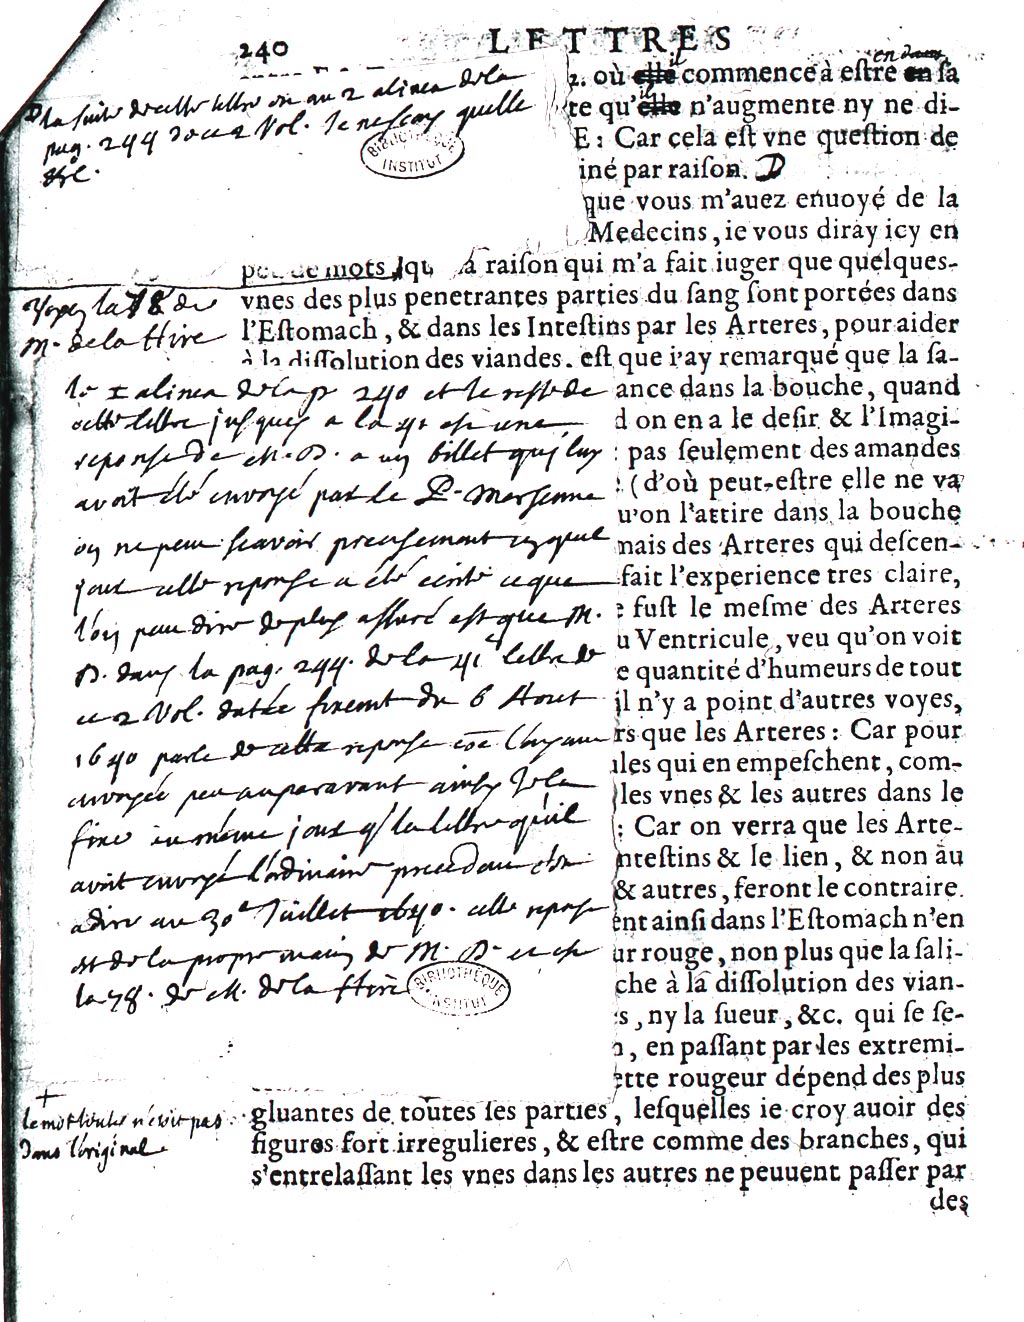 240
LETTRES
2. où elle il commence à estre en en dans sa
te qu'elle il n'augmente ny ne di-
E: Car cela est vne question de
iné par raison. D
que vous m'auez enuoyé de la
Medecins, ie vous diray icy en
D la suite de cette lettre on au 2 alinea de la
pag. 244 de ce 2 Vol. Je ne scay quelle
BIBLIOTHEQUE
INSTITUT
mots, qu a raison qui m'a fait iuger que quelques-
vnes des plus penetrantes parties du sang sont portées dans
l'Estomach, & dans les Intestins par les Arteres, pour aider
à la dissolution des viandes. est que i'ay remarqué que la sa-
Voyez la 78 de
M. de la Hire
ance dans la bouche, quand
d on en a le desir & l'Imagi-
: pas seulement des amandes
: (d'où peut-estre elle ne va
u'on l'attire dans la bouche
mais des Arteres qui descen-
fait l'experience tres claire,
e fust le mesme des Arteres
u Ventricule, veu qu'on voit
e quantité d'humeurs de tout
il n'y a point d'autres voyes,
rs que les Arteres: Car pour
ules qui en empeschent, com-
les vnes & les autres dans le
; Car on verra que les Arte-
ntestins & le lien, & non au
& autres, feront le contraire.
ent ainsi dans l'Estomach n'en
ur rouge, non plus que la sali-
che à la dissolution des vian-
s, ny la sueur, &c. qui se se-
n, en passant par les extremi-
ette rougeur dépend des plus
le 1 alinea de la p 240 et le reste de
cette lettre jusques a la 41 est une
reponse de M. D. a un billet qui luy
avoit été envoyé par le P. Mersenne
on ne peut scavoir precisement en quel
jour cette reponse a été écrite ce que
l'on peut dire de plus assuré est que M.
D. dans la pag. 244. de la 41e lettre de
ce 2 Vol. datée fixement du 6 Aout
1640 parle de cette reponse coē l'ayant
envoyée peu auparavant ainsy je la
fixe au même jour q la lettre qu'il
avoit envoyé l'ordinaire precedent c'est a
dire au 30e Juillet 1640. cette reponse
est de la propre main de M. D. et est
la 78. de M. de la Hire
BIBLIOTHEQUE
INSTITUT
gluantes de toutes ses parties, lesquelles ie croy auoir des
figures fort irregulieres, & estre comme des branches, qui
s'entrelassant les vnes dans les autres ne peuuent passer par
des
+
le mot toutes n'etoit pas
dans l'original